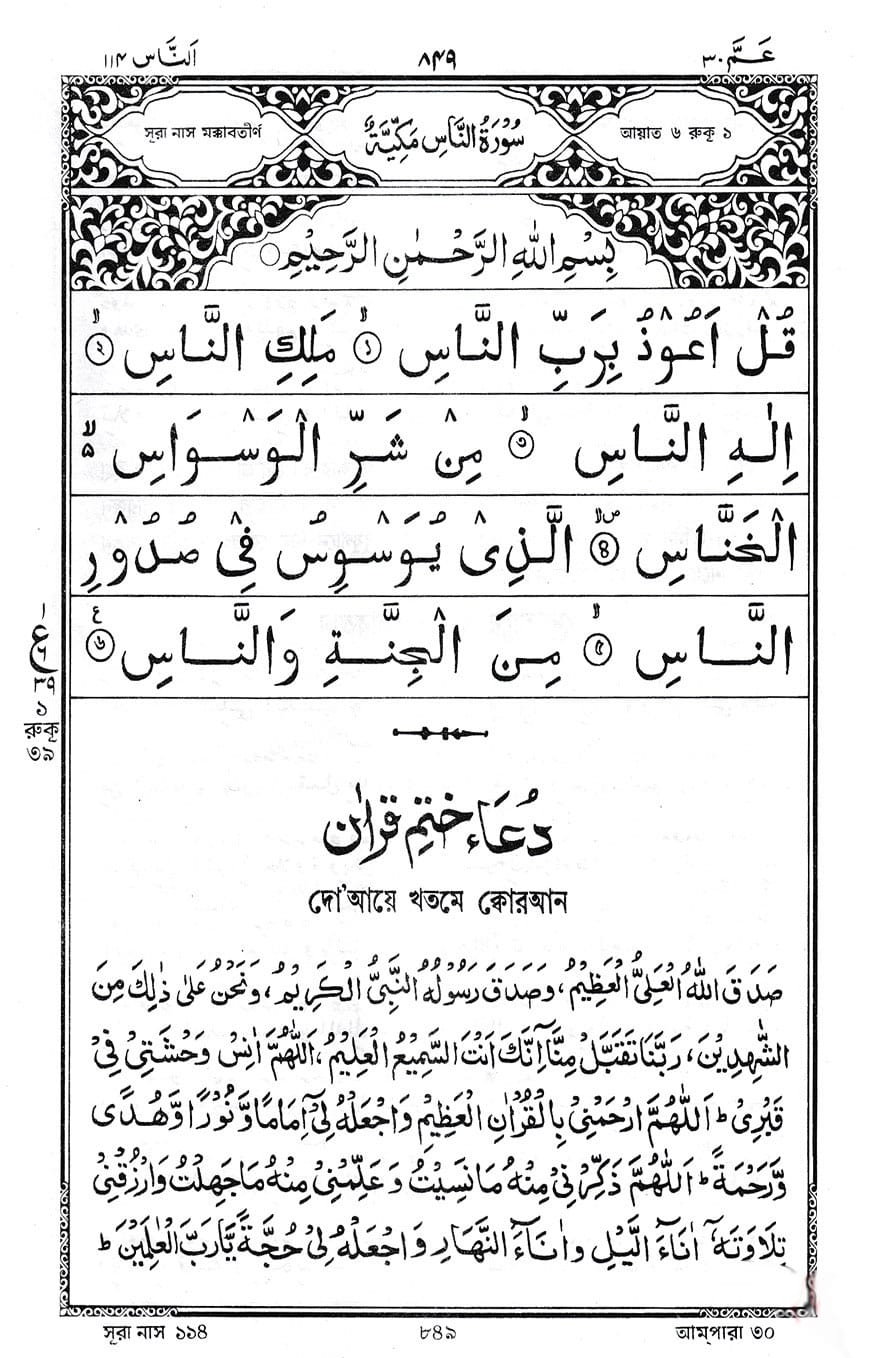 عَـمَّ ٣٠ ٨٤٩ اَلنَّاس ١١٤
সূরা নাস মক্কাবতীর্ণ سُوْرَةُ النَّاسِ مَكِّيَّةٌ আয়াত ৬ রুকূ ১
بِسْمِ اللهِ الرَّحْمٰنِ الرَّحِيْمِ ○
قُلْ اَعُوْذُ بِرَبِّ النَّاسِ ۙ﴿١﴾ مَلِكِ النَّاسِ ۙ﴿٢﴾
اِلٰهِ النَّاسِ ۙ﴿٣﴾ مِنْ شَرِّ الْوَسْوَاسِ ۙ۬
الْخَنَّاسِ ۪ۙ﴿٤﴾ الَّذِیْ يُوَسْوِسُ فِیْ صُدُوْرِ
النَّاسِ ۙ﴿٥﴾ مِنَ الْجِنَّةِ وَالنَّاسِ ﴿٦﴾ ع
١
ع
٦
٣٩
১
রুকূ
৩৯
دُعَاءِ خَتْمِ قُرْاٰن
দো'আয়ে খতমে ক্বোরআন
صَدَقَ اللهُ الْعَلِیُّ الْعَظِيْمُ، وَصَدَقَ رَسُوْلُهُ النَّبِیُّ الْكَرِيْمُ، وَنَحْنُ عَلٰى ذٰلِكَ مِنَ
الشّٰهِدِيْنَ، رَبَّنَا تَقَبَّلْ مِنَّا اِنَّكَ اَنْتَ السَّمِيْعُ الْعَلِيْمُ، اَللّٰهُمَّ اٰنِسْ وَحْشَتِیْ فِیْ
قَبْرِیْ ؕ اَللّٰهُمَّ ارْحَمْنِیْ بِالْقُرْاٰنِ الْعَظِيْمِ وَاجْعَلْهُ لِیْۤ اِمَامًا وَّنُوْرًا وَّهُدًى
وَّرَحْمَةً ؕ اَللّٰهُمَّ ذَكِّرْنِیْ مِنْهُ مَا نَسِيْتُ وَعَلِّمْنِیْ مِنْهُ مَا جَهِلْتُ وَارْزُقْنِیْ
تِلَاوَتَهٗۤ اٰنَآءَ الَّيْلِ وَاٰنَآءَ النَّهَارِ وَاجْعَلْهُ لِیْ حُجَّةً يَّا رَبَّ الْعٰلَمِيْنَ ؕ
সূরা নাস ১১৪ ৮৪৯ আম্পারা ৩০